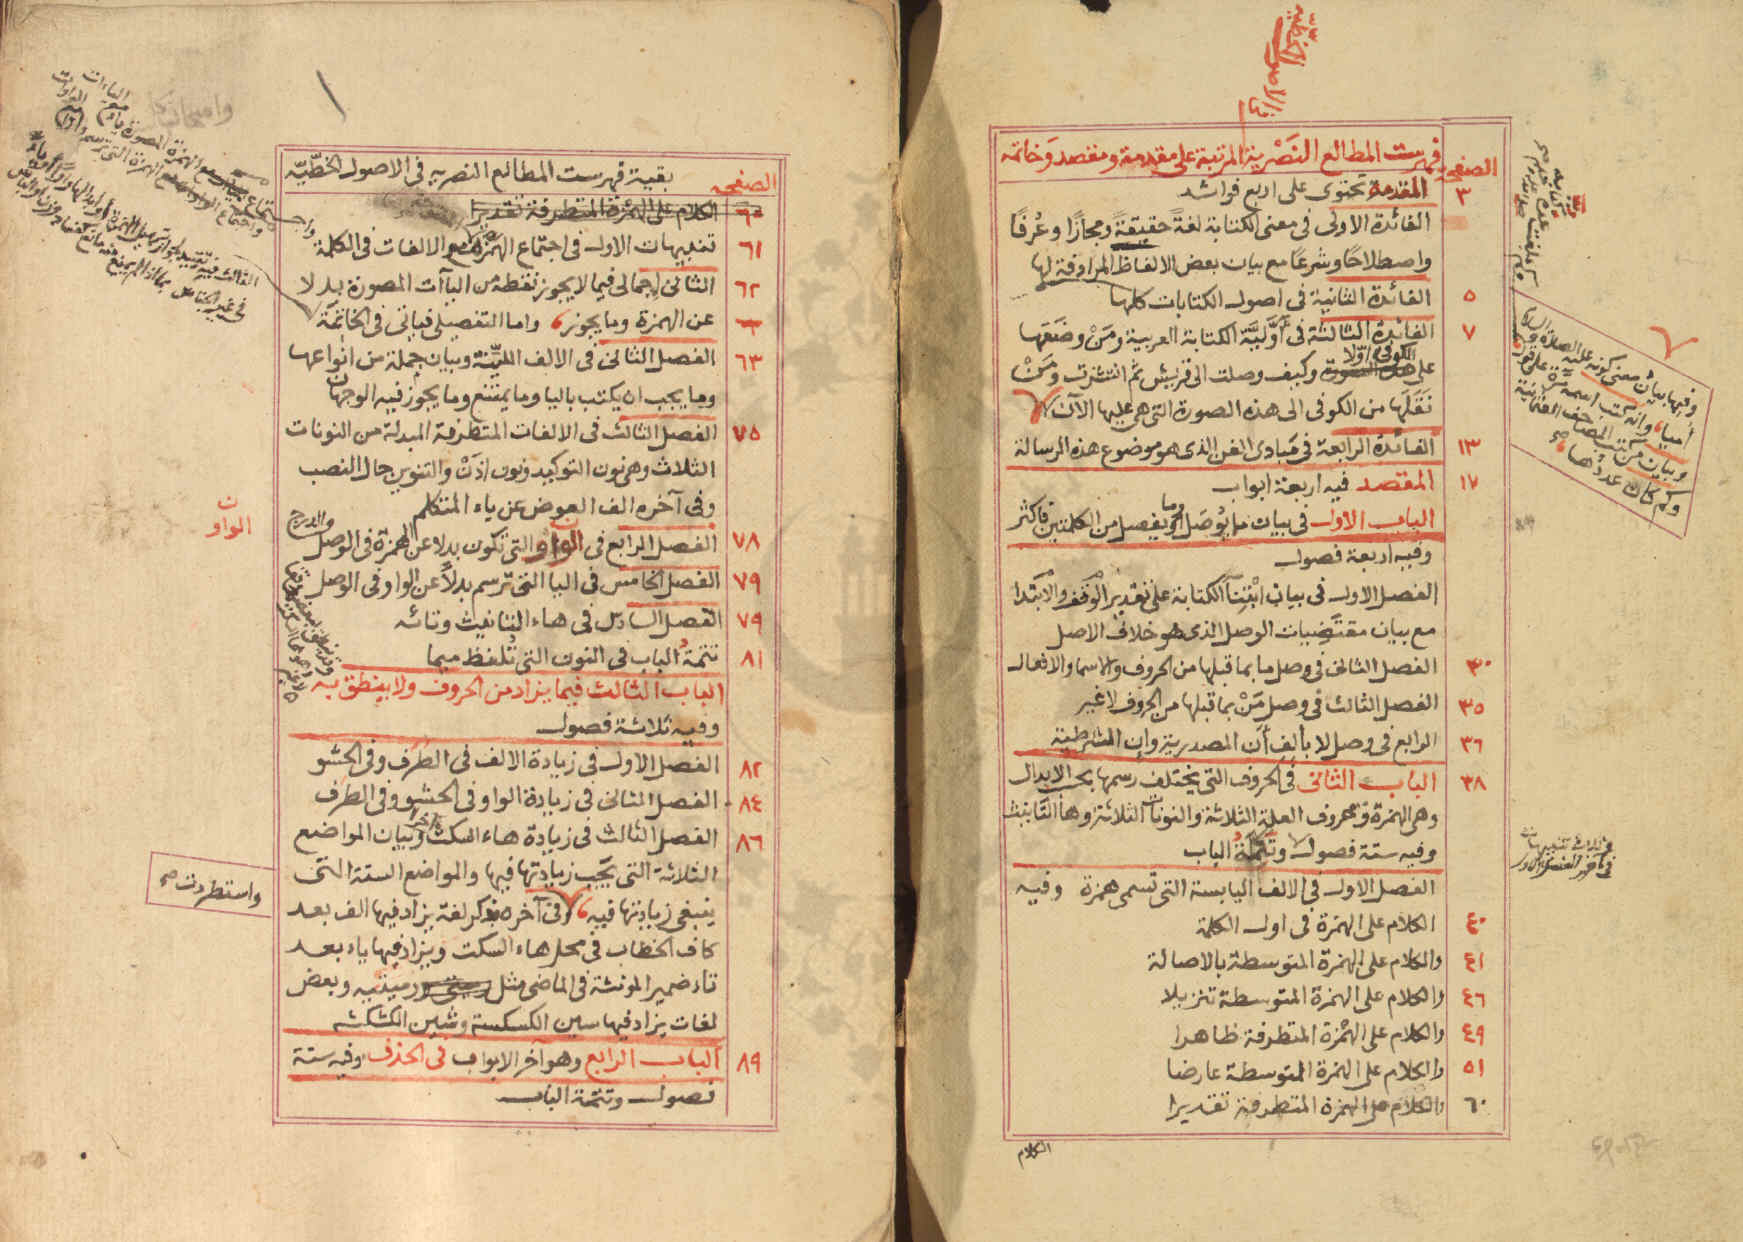 فى الاصول الخطيه
الصفحه فهرست المطالع النصرية المرتبة على مقدمة ومقصد وخاتمه
٣ المقدمة تحتوى على اربع فوائد
الفائدة الاولى فى معنى الكتابة لغةً حقيقةً ومجازًا وعُرفًا
واصطلاحًا وشرعًا مع بيان بعض الالفاظ المرادفة لها
٥ الفائدة الثانية فى اصول الكتابات كلها
٧ الفائدة الثالثة فى أوّليّة الكتابة العربية ومَنْ وضَعَها
على الكوفى اوّلا وكيف وصلت الى قريش ثم انتشرت ومَنْ
نقَلَها من الكوفى الى هذه الصورة التى هى عليها الآن
١٣ الفائدة الرابعة فى مبادى الفن الذى هو موضوع هذه الرسالة
١٧ المقصد فيه اربعة ابواب
الباب الاول فى بيان ما يُوصَل وما يفصل من الكلمتين فاكثر
وفيه اربعة فصول
الفصل الاول فى بيان ابْتِنآ الكتابة على تقدير الوقف والابتدا
مع بيان مقتضيات الوصل الذى هو خلاف الاصل
٣٠ الفصل الثانى فى وصل ما بما قبلها من الحروف والاسما والافعال
٣٥ الفصل الثالث فى وصل مَنْ بما قبلها من الحروف لا غير
٣٦ الرابع فى وصل لا بألف أن المصدرية وإن الشرطية
٣٨ الباب الثانى فى الحروف التى يختلف رسمها بحسب الابدال
وهى الهمزة وحروف العلة الثلاثة والنونات الثلاثة وها التانيث
وفيه ستة فصول وتتمّة الباب
الفصل الاول فى الالف اليابسة التى تسمى همزة وفيه
٤٠ الكلام على الهمزة فى اول الكلمة
٤١ والكلام على الهمزة المتوسطة بالاصالة
٤٦ والكلام على الهمزة المتوسطة تنزيلا
٤٩ والكلام على الهمزة المتطرفة ظاهرا
٥١ والكلام على الهمزة المتوسطة عارضا
٦٠ والكلام على الهمزة المتطرفة تقديرا
الكلام
وفيها بيان معنى كونه عليه الصلاة والسلام
أميا وانه كتب اسمه مرة
وبيان من كتب المصاحف العثمانية
وكم كان عددها صح
وثلاث تنبيهات
فى آخر الفصل الاول
الصفحه بقية فهرست المطالع النصريه فى الاصول الخطّيّه
٦٠ الكلام على الهمزة المتطرفة تقديرا
٦١ تنبيهات الاول فى اجتماع الهمزة مع الالفات فى الكلمة
٦٢ الثانى اجمالى فيما لا يجوز نقطه من اليآآت المصورة بدلا
عن الهمزة وما يجوز واما التفصيلى فياتى فى الخاتمة
٦٣ الفصل الثانى فى الالف الليّنة وبيان جملة من انواعها
وما يجب ان يكتب باليا وما يمتنع وما يجوز فيه الوجهان
٧٥ الفصل الثالث فى الالفات المتطرفة المبدلة من النونات
الثلاث وهى نون التوكيد ونون اذَنْ والتنوين حال النصب
وفى آخره الف العوض عن ياء المتكلم
٧٨ الفصل الرابع فى الواو التى تكون بدلا عن الهمزة فى الوصل والدرج
٧٩ الفصل الخامس فى اليا التى ترسم بدلاً عن الواو فى الوصل
٧٩ الفصل السادس فى هاء التانيث وتائه
٨١ تتمةُ الباب فى النون التى تُلفظ ميما
الباب الثالث فيما يزاد من الحروف ولا ينطق به
وفيه ثلاثة فصول
٨٢ الفصل الاول فى زيادة الالف فى الطرف وفى الحشو
٨٤ الفصل الثانى فى زيادة الواو فى الحشو وفى الطرف
٨٦ الفصل الثالث فى زيادة هاء السكت وبيان المواضع
الثلاثة التى يجب زيادتها فيها والمواضع الستة التى
ينبغى زيادتها فيه وفى آخره ذكر لغة يزاد فيها الف بعد
كاف الخطاب فى محل هاء السكت ويزاد فيها ياء بعد
تاء ضمير المونثة فى الماضى مثل رميتيه وبعض
لغات يزاد فيها سين الكسكسة وشين الكشكشه
٨٩ الباب الرابع وهو آخر الابواب فى الحذف وفيه ستة
فصول وتتمة الباب
ن
الواو
واستطردت صح